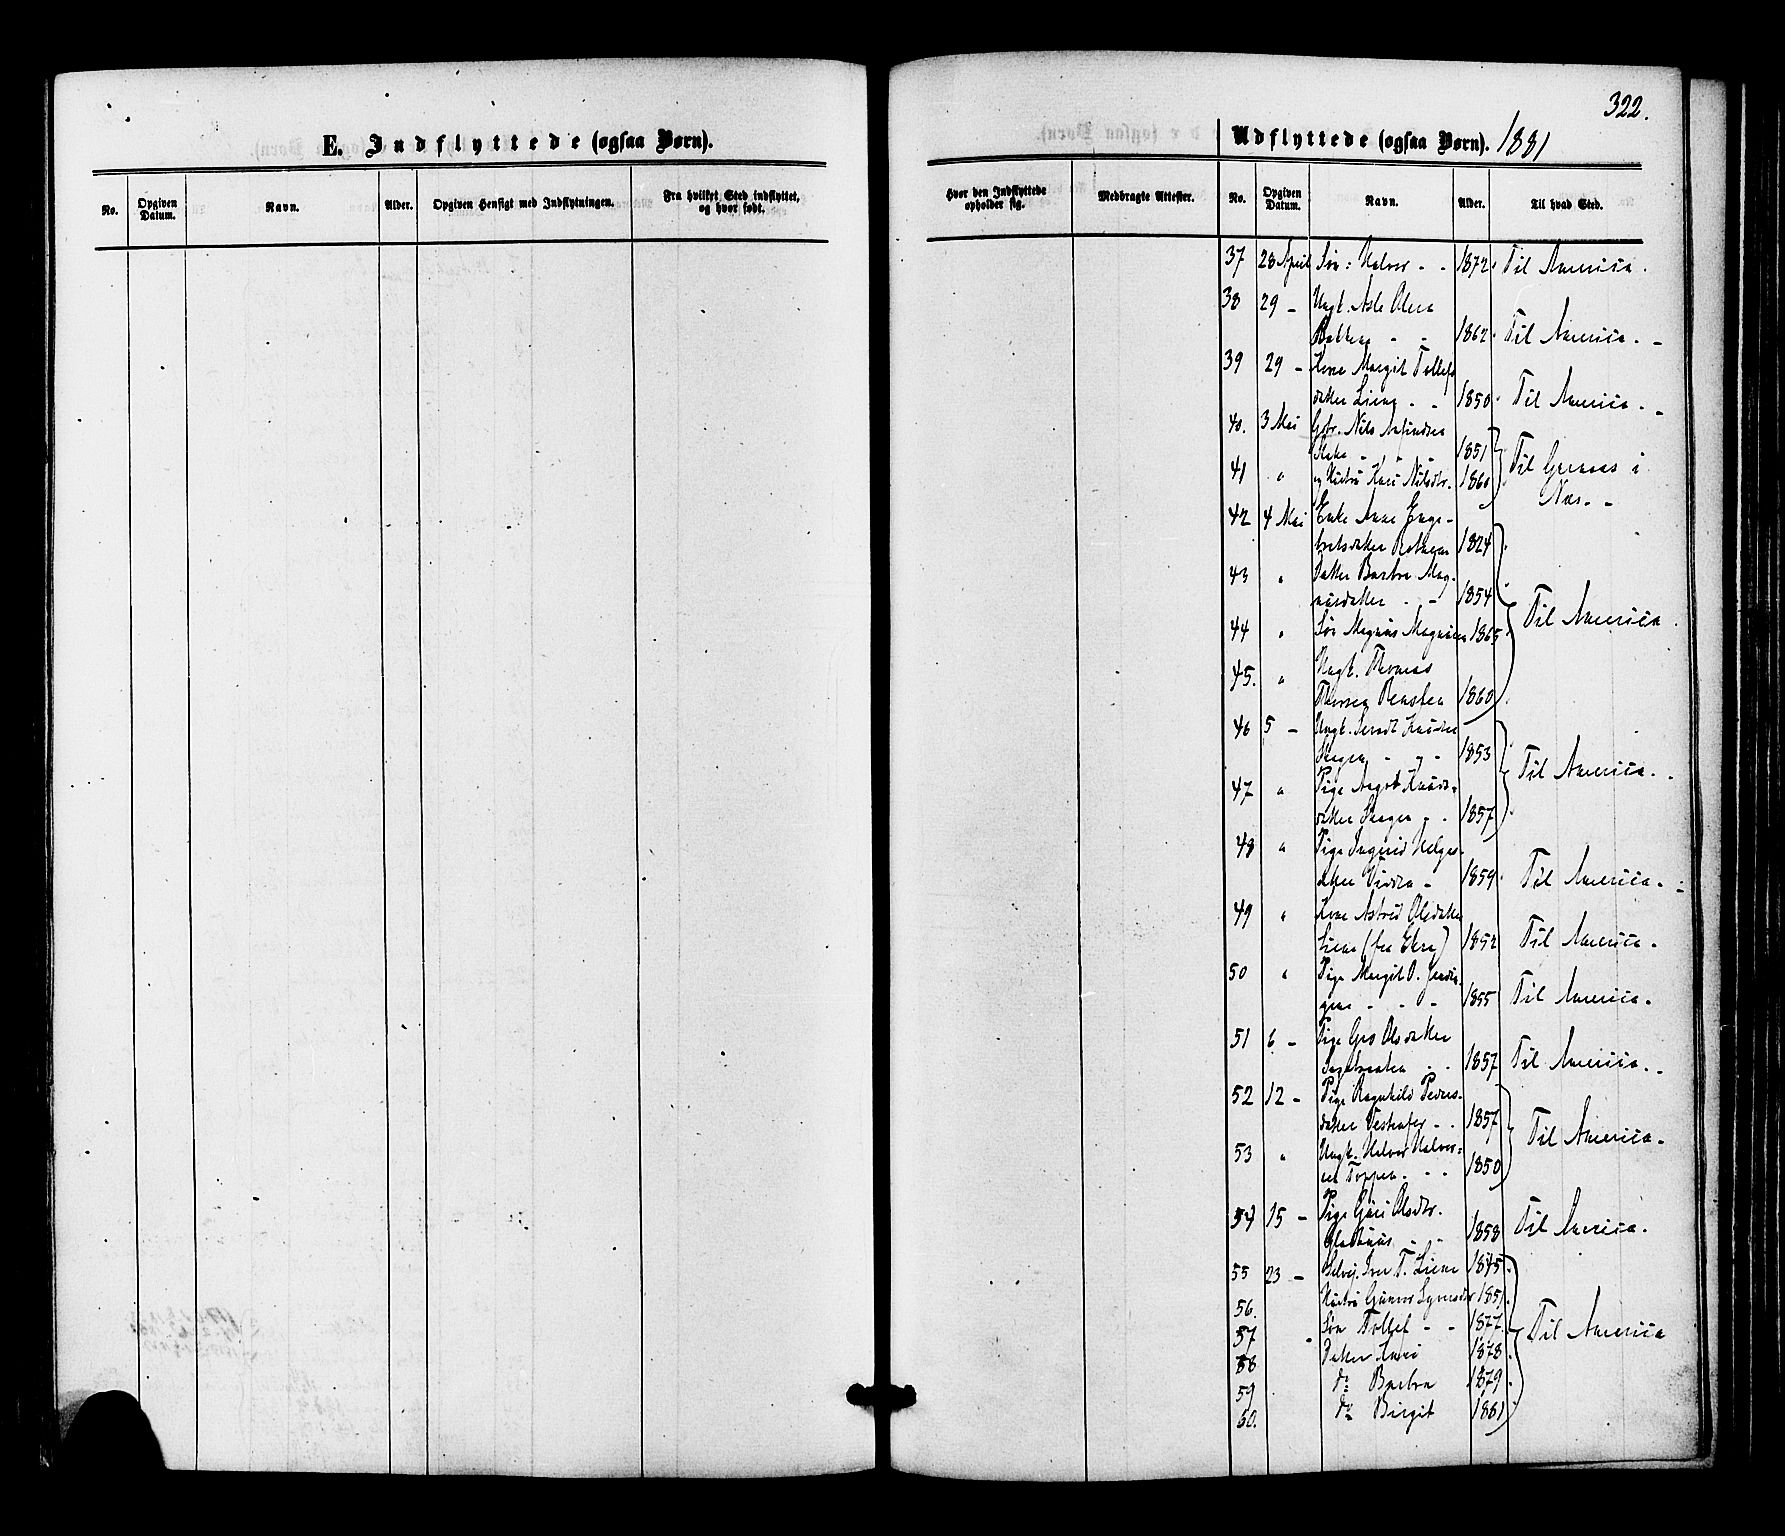 322.
E. Indflyttede (ogsaa Børn).
No.
Opgiven Datum.
Navn.
Alder.
Opgiven Hensigt med Indflytningen.
Fra hvilket Sted indflyttet, og hvor født.
Udflyttede (ogsaa Børn). 1881
Hvor den Indflyttede opholder sig.
Medbragte Attester.
No.
Opgiven Datum.
Navn.
Alder.
Til hvad Sted.
37 28 April Søn: Halvor - - 1872. Til America.
38 29 - Ungk. Asle Olsen
Bakken - - 1862. Til America. -
39 29 - Kone Margit Tollefs
datter Liene - - 1850. Til America. -
40. 3 Mai Gbr. Nils Amundsen
1851 Til i
41 " og Hustru Kari Nilsdtr. 1860 Næs. -
42 4 Mai Enke Anne Enge-
bretsdatter 1824
43 " Datter Barbro Mag-
nusdatter - - 1854 Til America.
44 " Søn Magnus Magnusen 1865
45. " Ungk. Thomas
Thorsen 1860
46 5 - Ungk. Knudsen
Skogen - - - 1853 Til America.
47 " Pige Aagot Knuds-
datter Skogen - - 1857
48 " Pige Ingerid Helges-
datter - 1859. Til America. -
49 " Kone Astrid Olsdatter
Liene (fra Ekre) 1852 Til America.
50 " Pige Margit O.
- - - 1855 Til America.
51 6 - Pige Gro Olsdatter
- - 1857 Til America. -
52 12 - Pige Ragnhild Peders-
datter - - 1857 Til America.
53 " Ungk. Halvor Halvor-
sen Foppen - - - 1850
54 15 - Pige Guri Olsdtr.
- - 1858 Til America.
55 23 - Selvej. Iver T. Liene 1845.
56. Hustru Gunvor 1851.
57 Søn Tollef - - 1877. Til America
58 Datter Kari 1878.
59 do Barbro 1879.
60. do Birgit 1881